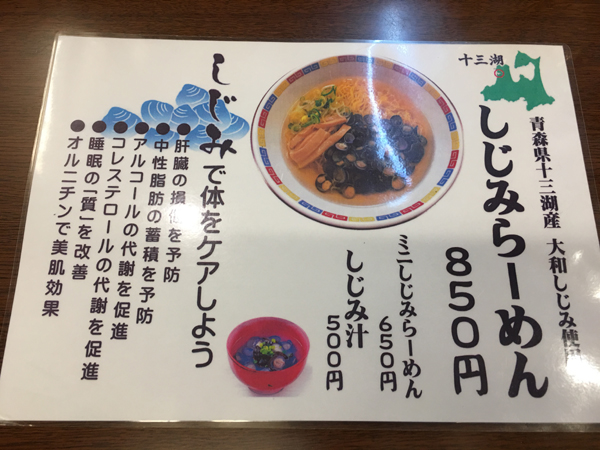 十三湖
青森県十三湖産 大和しじみ使用
しじみらーめん
850円
ミニしじみらーめん
650円
しじみ汁
500円
しじみで体をケアしよう
●肝臓の損傷を予防
●中性脂肪の蓄積を予防
●アルコールの代謝を促進
●コレステロールの代謝を促進
●睡眠の「質」を改善
●オルニチンで美肌効果